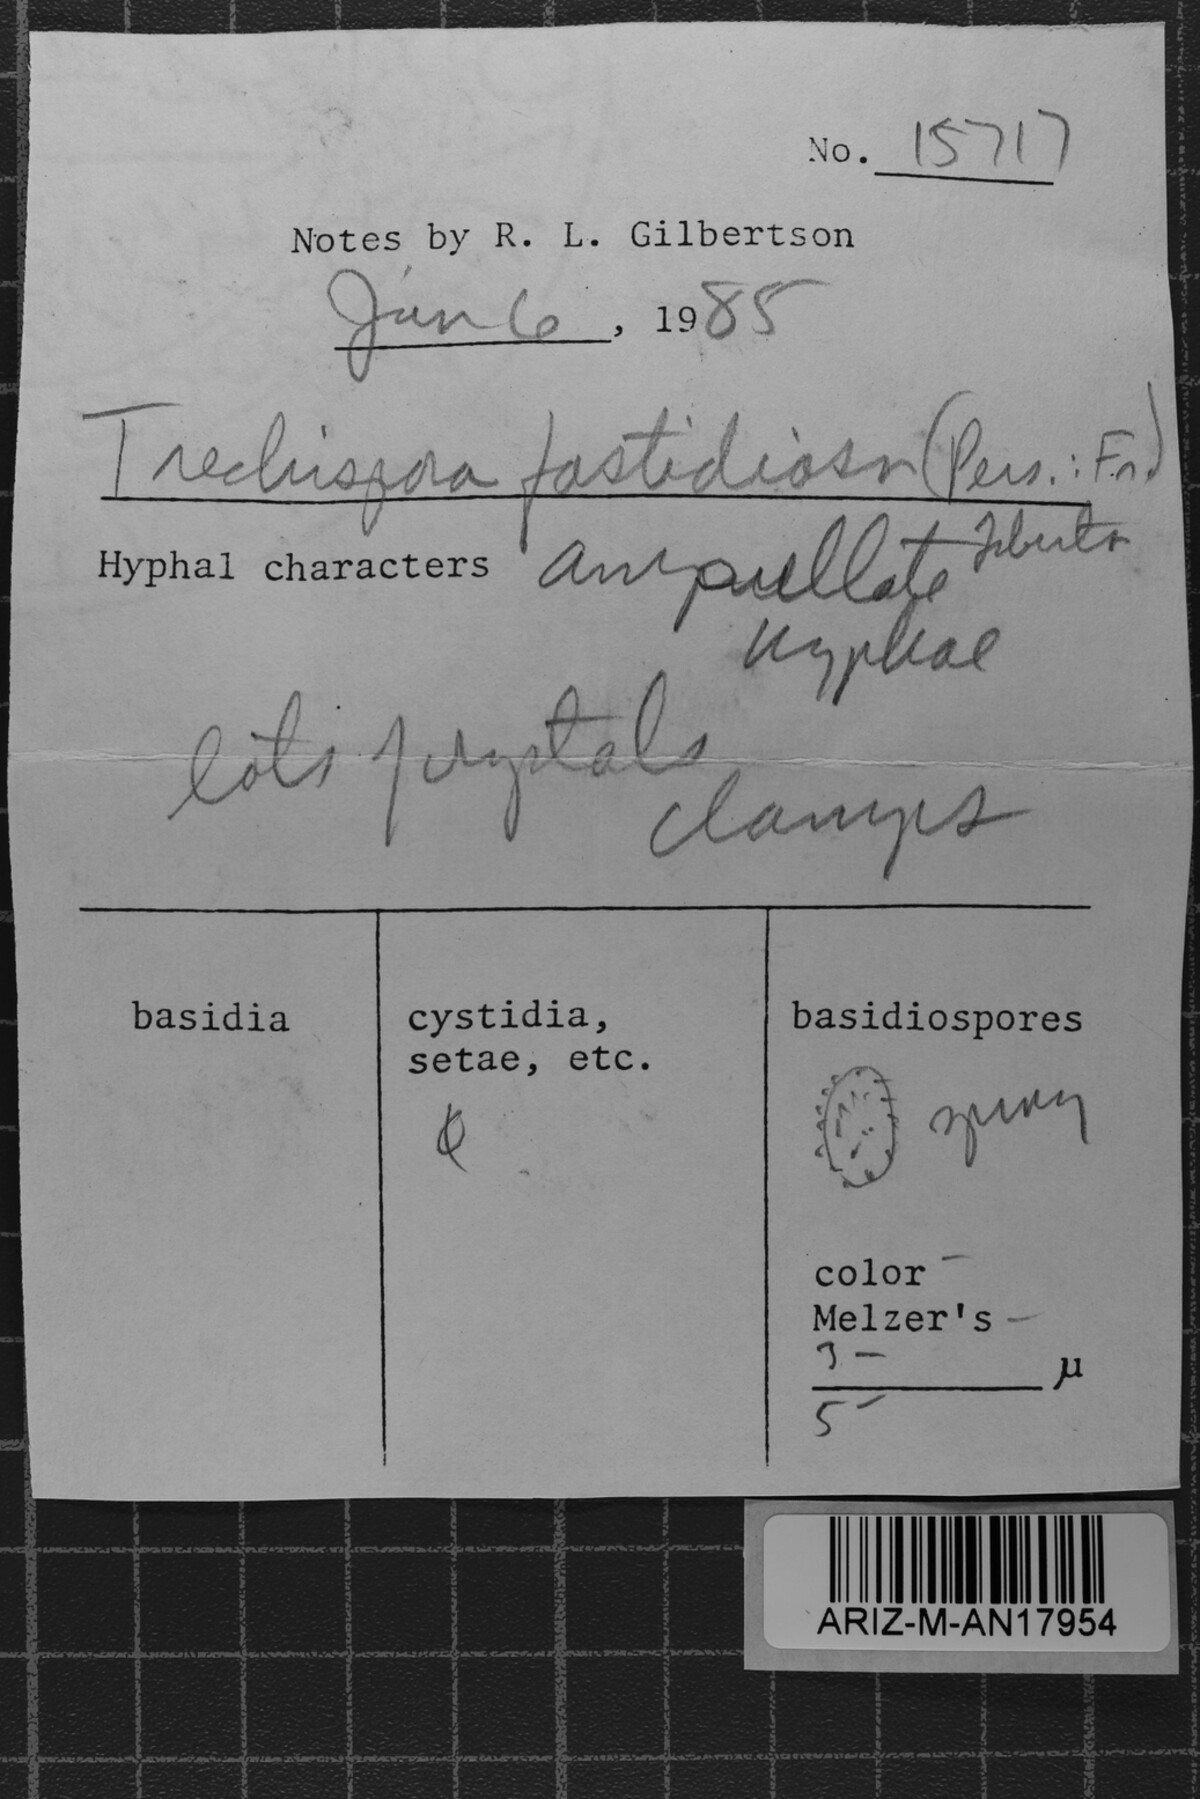 No. 15717
Notes by R. L. Gilbertson
Jan 6, 1985
Trechispora fastidiosa (Pers.: Fr.)
Liberta
Hyphal characters ampullate
hyphae
lots crystals
clamps
basidia
cystidia,
setae, etc.
φ
basidiospores
spiny
color -
Melzer's -
3 -
µ
5 -
ARIZ-M-AN17954